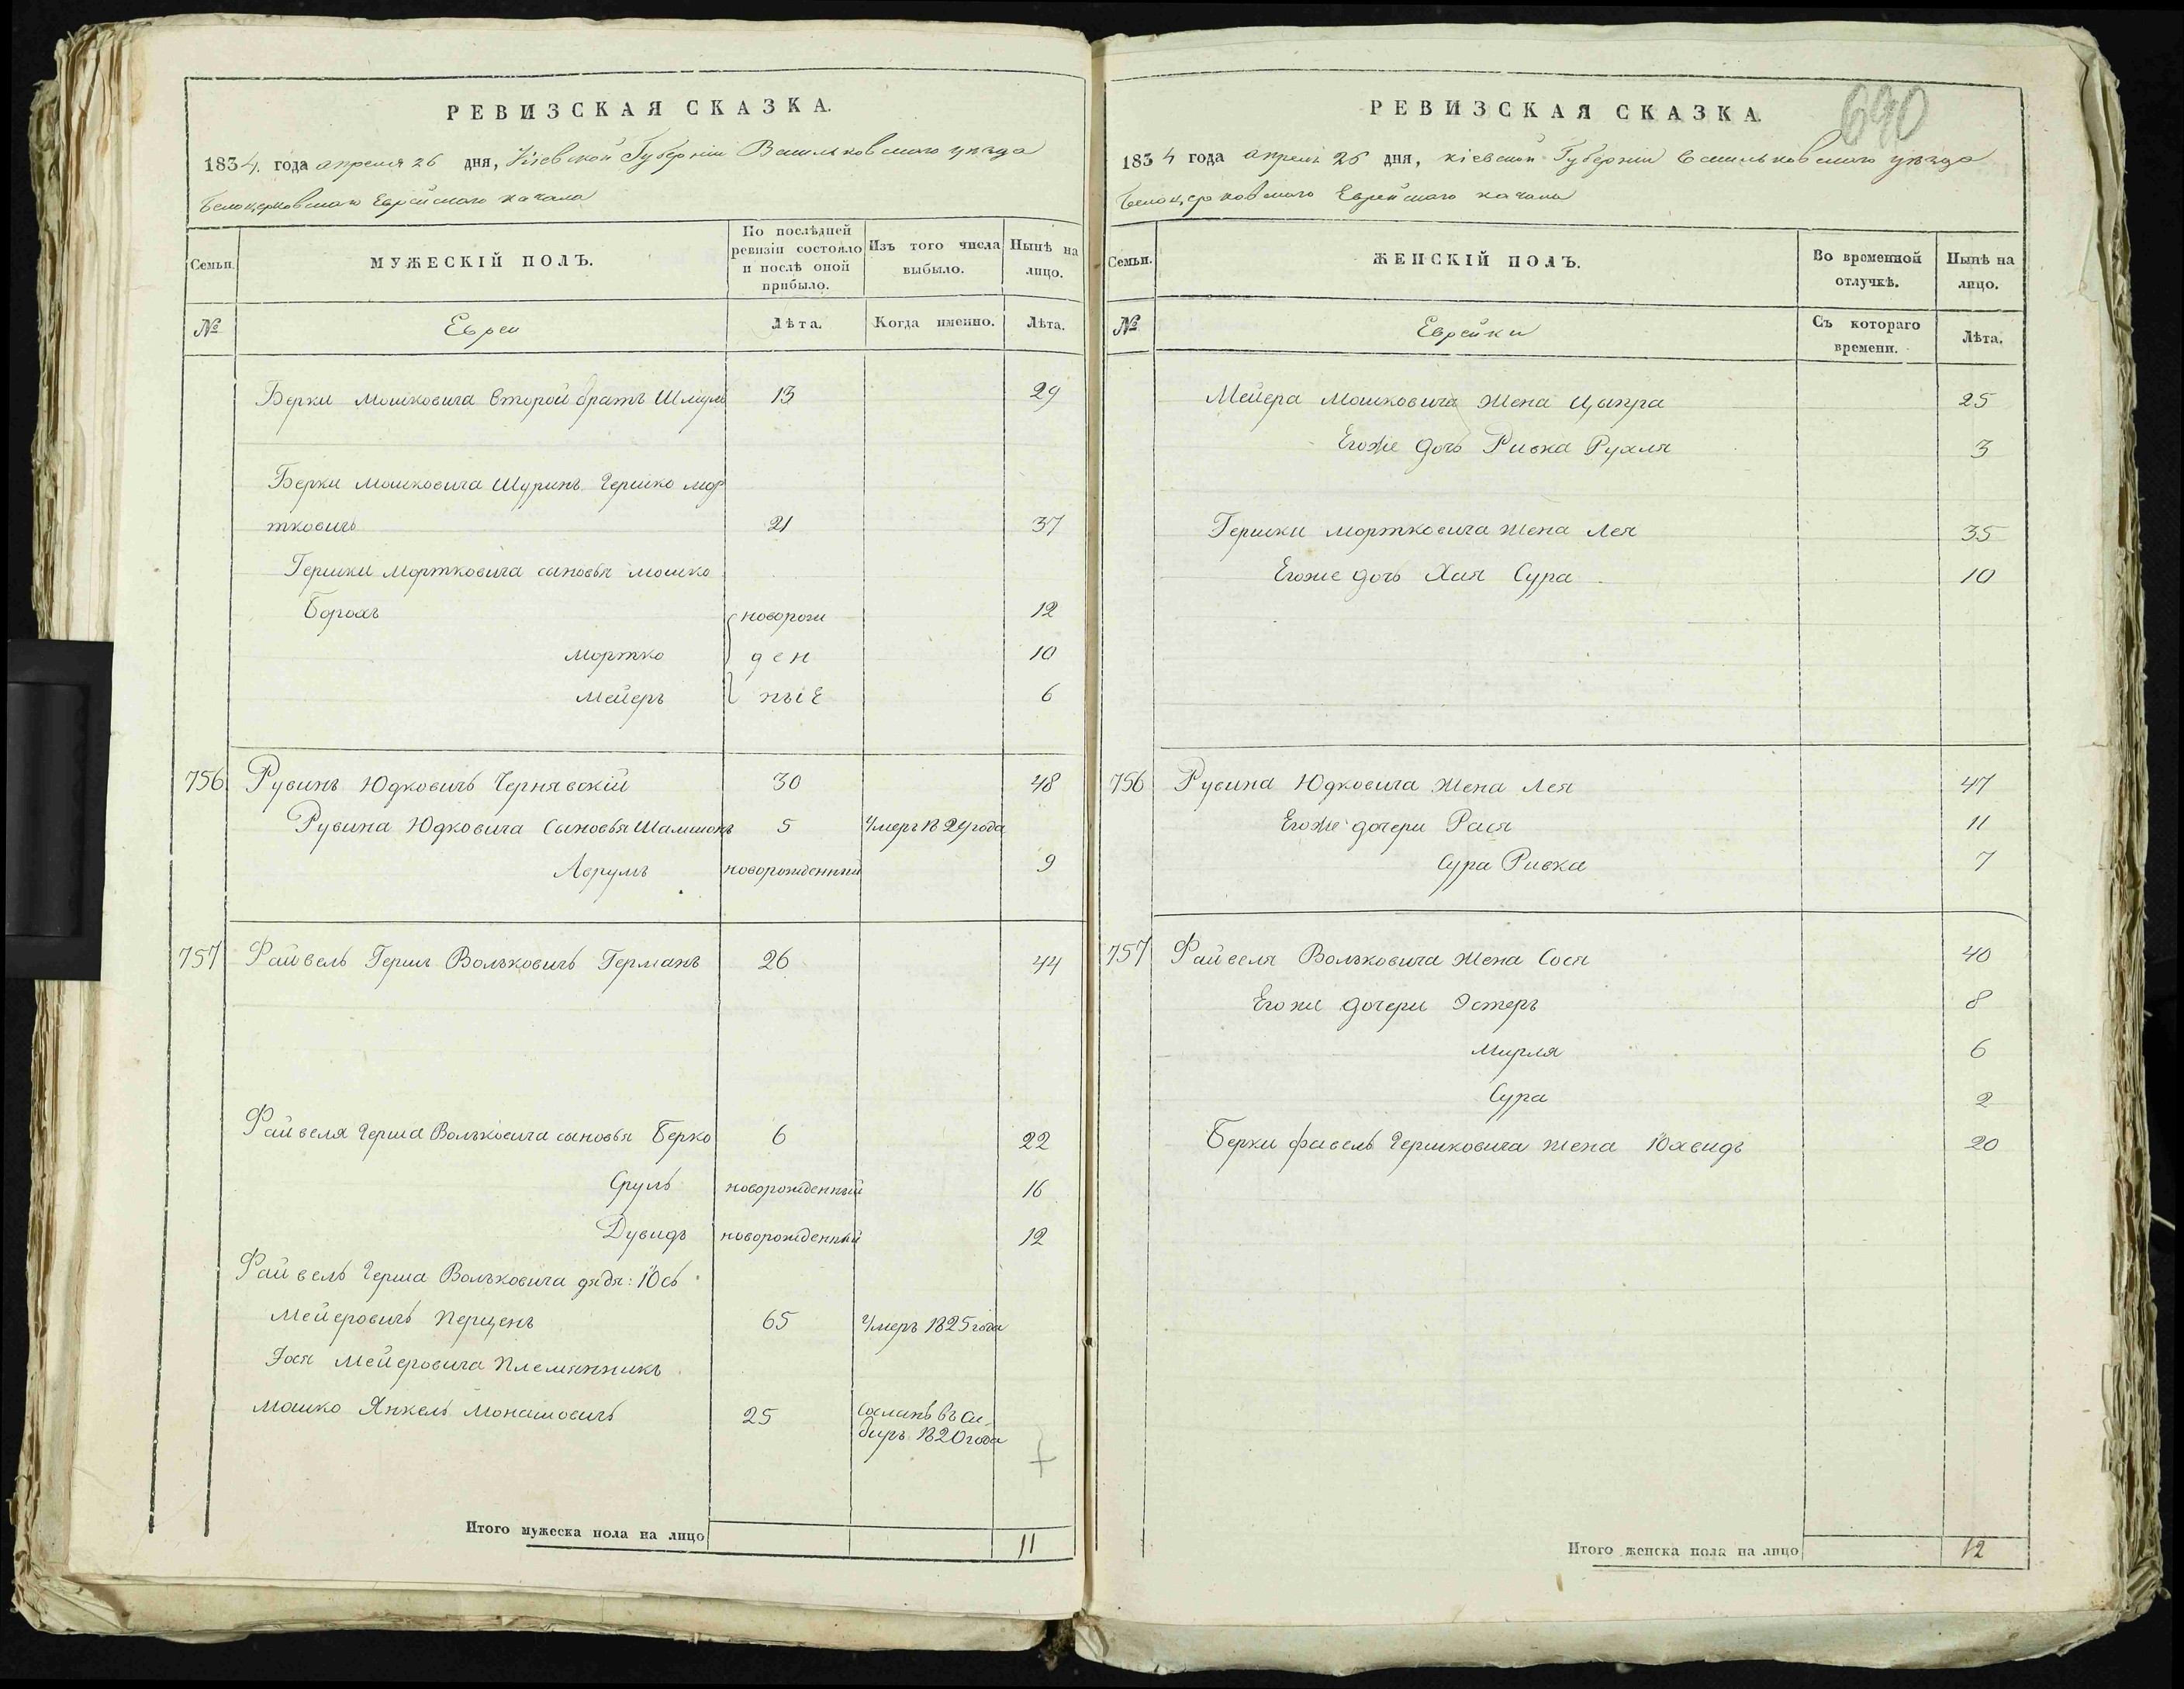 РЕВИЗСКАЯ СКАЗКА.
1834. года апреля 26 дня, Кіевской Губерніи Васильковского уѣзда
Белоцерковского Еврейского кагала
Семьи.
МУЖЕСКІЙ ПОЛЪ.
По послѣдней ревизіи состояло и послѣ оной прибыло.
Изъ того числа выбыло.
Нынѣ на лицо.
№
Евреи
Лѣта.
Когда именно.
Лѣта.
Берки Мошковича второй братъ Шмуль 13 29
Берки Мошковича Шуринъ Гершко мор
тковичъ 21 37
Гершки Мортковича сыновья мошко
Борохъ новорож 12
Мортко ден 10
Мейеръ ные 6
756 Рувинъ Юдковичъ Чернявскій 30 48
Рувина Юдковича Сыновья Шамшонъ 5 Умеръ 1829 года
Аврумъ новорожденный 9
757 Файвель Гершъ Вольковичъ Германъ 26 44
Файвеля Герша Вольковича сыновья Берко 6 22
Сруль новорожденный 16
Дувидъ новорожденный 12
Файвель Герша Вольковича дядя: Юсь
Мейеровичъ Перценъ 65 Умеръ 1825 года
Іося Мейеровича Племянникъ
Мошко Янкель Монашовичъ 25 Сосланъ въ Си-
биръ 1820 года
Итого мужеска пола на лицо 11
РЕВИЗСКАЯ СКАЗКА.
690
1834 года апреля 26 дня, Кіевской Губерніи Васильковского уѣзда
Белоцерковского Еврейского кагала
Семьи.
ЖЕНСКІЙ ПОЛЪ.
Во временной отлучкѣ.
Нынѣ на лицо.
№
Еврейки
Съ котораго времени.
Лѣта.
Мейера Мошковича Жена Цыпра 25
Егоже дочь Ривка Рухля 3
Гершки Мортковича жена Лея 35
Егоже дочь Хая Сура 10
756 Рувина Юдковича Жена Лея 47
Егоже дочери Рася 11
Сура Ривка 7
757 Файвеля Вольковича Жена Сося 40
Егоже дочери Эстеръ 8
Мирля 6
Сура 2
Берки фавель Гершковича жена Юхвидъ 20
Итого женска пола на лицо 12